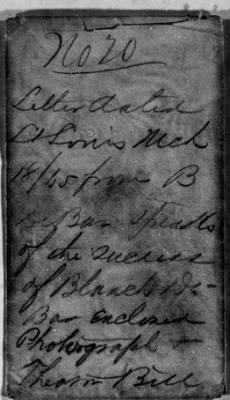 No 20
Letter dated
St Louis Mch
18/65 from B
De Bar speaks
of the success
of Blanche De-
Bar Enclosed
Photograph &
Bill